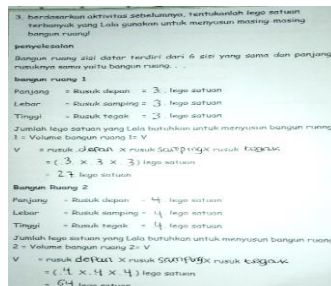 3. berdasarkan aktivitas sebelumnya, tentukanlah lego satuan
terbanyak yang Lala gunakan untuk menyusun masing masing
bangun ruang!
penyelesaian
Bangun ruang sisi datar terdiri dari 6 sisi yang sama dan panjang
rusuknya sama yaitu bangun ruang. . .
bangun ruang 1
Panjang = Rusuk depan = 3. lego satuan
Lebar = Rusuk samping = 3. lego satuan
Tinggi = Rusuk tegak = 3. lego satuan
Jumlah lego satuan yang Lala butuhkan untuk menyusun bangun ruang
1 = Volume bangun ruang 1= V
V = rusuk depan X rusuk samping x rusuk tegak
= ( 3. X . 3 X . 3 ) lego satuan
= 27 lego satuan
Bangun Ruang 2
Panjang = Rusuk depan = 4. lego satuan
Lebar = Rusuk samping = 4 lego satuan
Tinggi = Rusuk tegak = 4. lego satuan
Jumlah lego satuan yang Lala butuhkan untuk menyusun bangun ruang
2 = Volume bangun ruang 2= V
V = rusuk depan X rusuk samping x rusuk tegak
= ( 4 X . 4 X 4 ) lego satuan
= 64 lego satuan